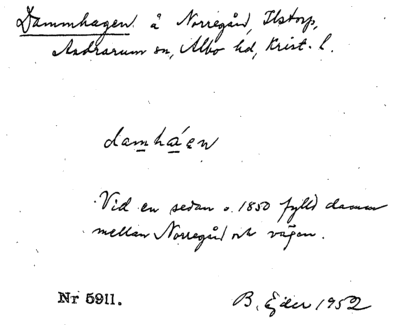 Dammhagen å Norregård, Ilstorp,
Andrarum sn, Albo hd, Krist. l.
damháen
Vid en sedan o. 1850 fylld damm
mellan Norregård och vägen.
Nr 5911.
B. Ejder 1952